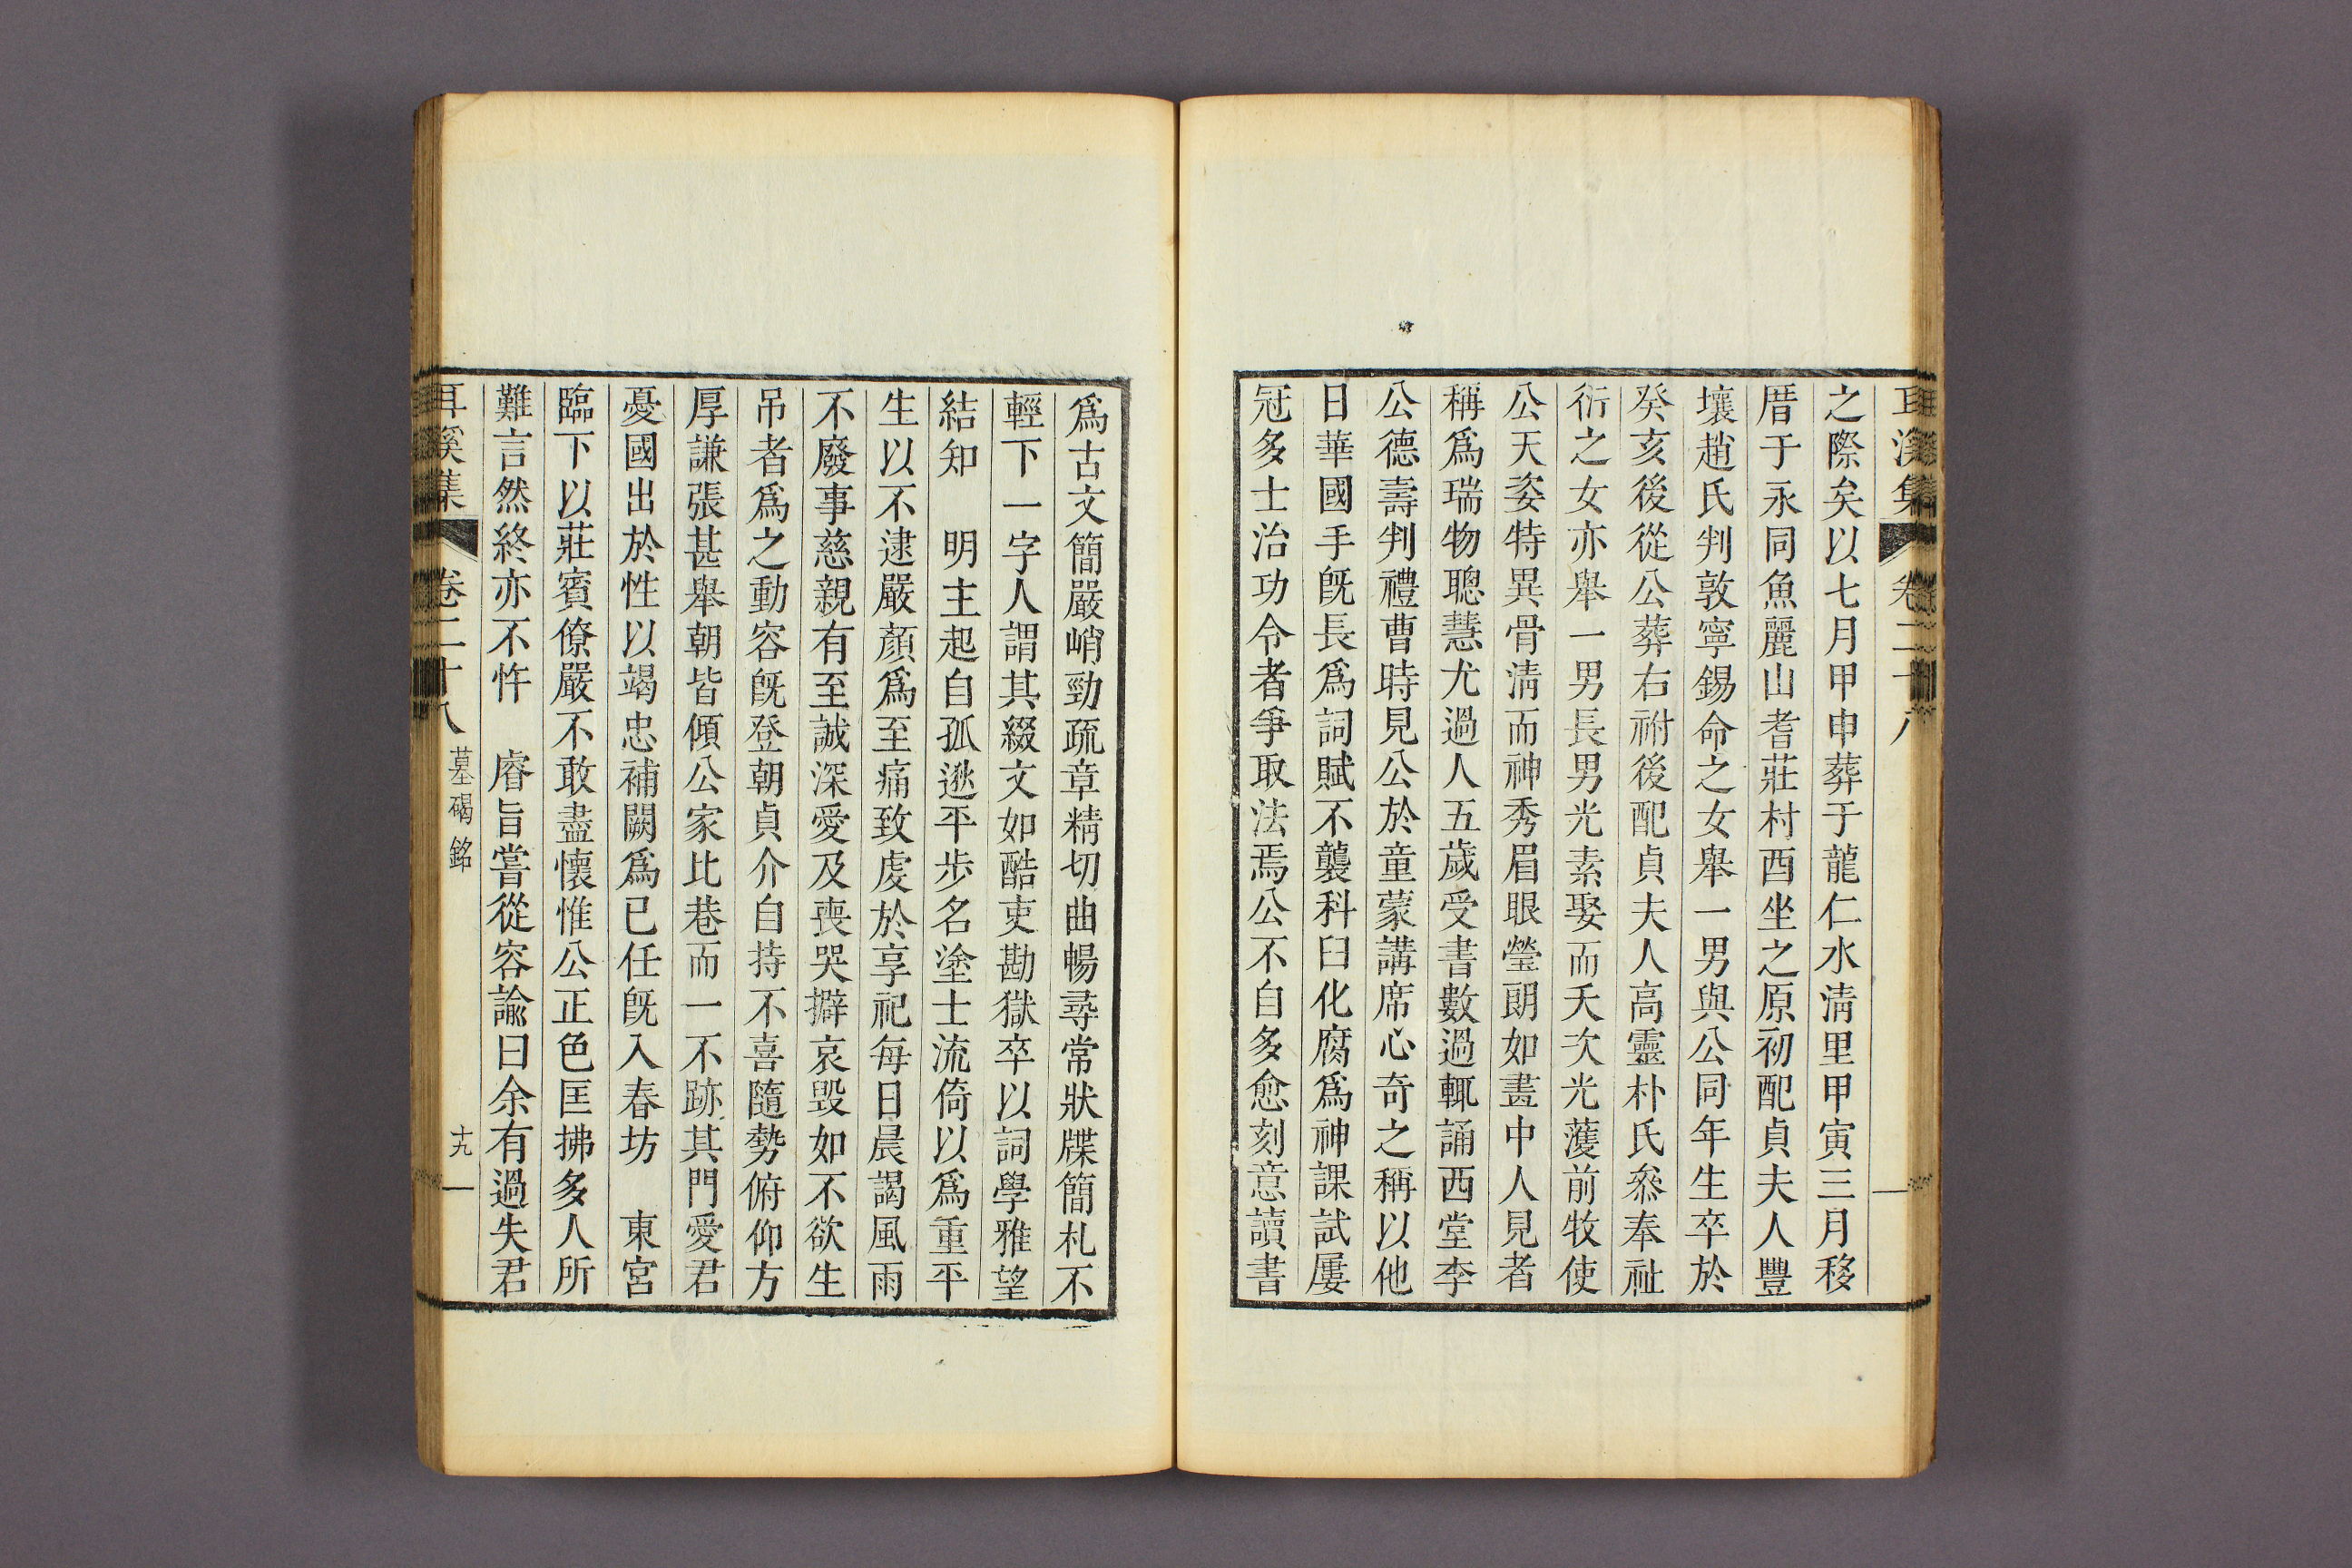 耳溪集 卷二十八
之際矣以七月甲申葬于龍仁水淸里甲寅三月移
厝于永同魚麗山耆莊村酉坐之原初配貞夫人豐
壤趙氏判敦寧錫命之女舉一男與公同年生卒於
癸亥後從公葬右祔後配貞夫人高靈朴氏叅奉祉
衍之女亦舉一男長男光素娶而夭次光濩前牧使
公天姿特異骨淸而神秀眉眼瑩朗如畫中人見者
稱爲瑞物聰慧尤過人五歲受書數過輒誦西堂李
公德壽判禮曹時見公於童蒙講席心奇之稱以他
日華國手旣長爲詞賦不襲科臼化腐爲神課試屢
冠多士治功令者爭取法焉公不自多愈刻意讀書
爲古文簡嚴峭勁疏章精切曲暢尋常狀牒簡札不
輕下一字人謂其綴文如酷吏勘獄卒以詞學雅望
結知 明主起自孤逖平步名塗士流倚以爲重平
生以不逮嚴顏爲至痛致虔於享祀每日晨謁風雨
不廢事慈親有至誠深愛及喪哭擗哀毁如不欲生
吊者爲之動容旣登朝貞介自持不喜隨勢俯仰方
厚謙張甚舉朝皆傾公家比巷而一不跡其門愛君
憂國出於性以竭忠補闕爲已任旣入春坊 東宮
臨下以莊賓僚嚴不敢盡懷惟公正色匡拂多人所
難言然終亦不忤 睿旨嘗從容諭曰余有過失君
耳溪集 卷二十八 墓碣銘 十九